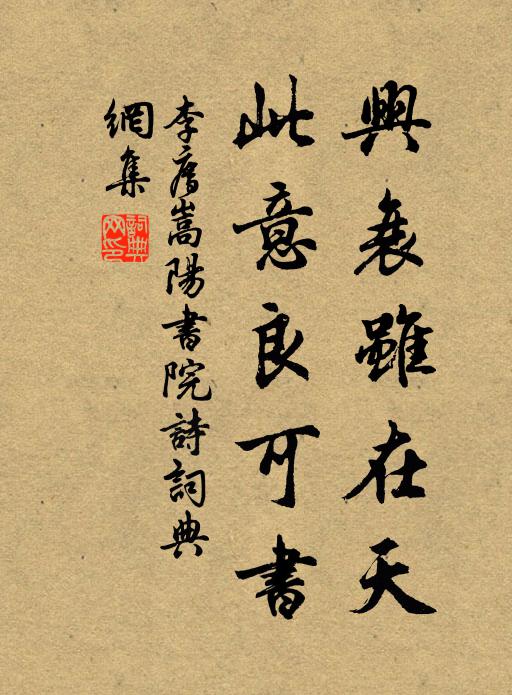 興衰雖在天
此意良可書
李廌嵩陽書院詩詞典
網集
詞典
網印